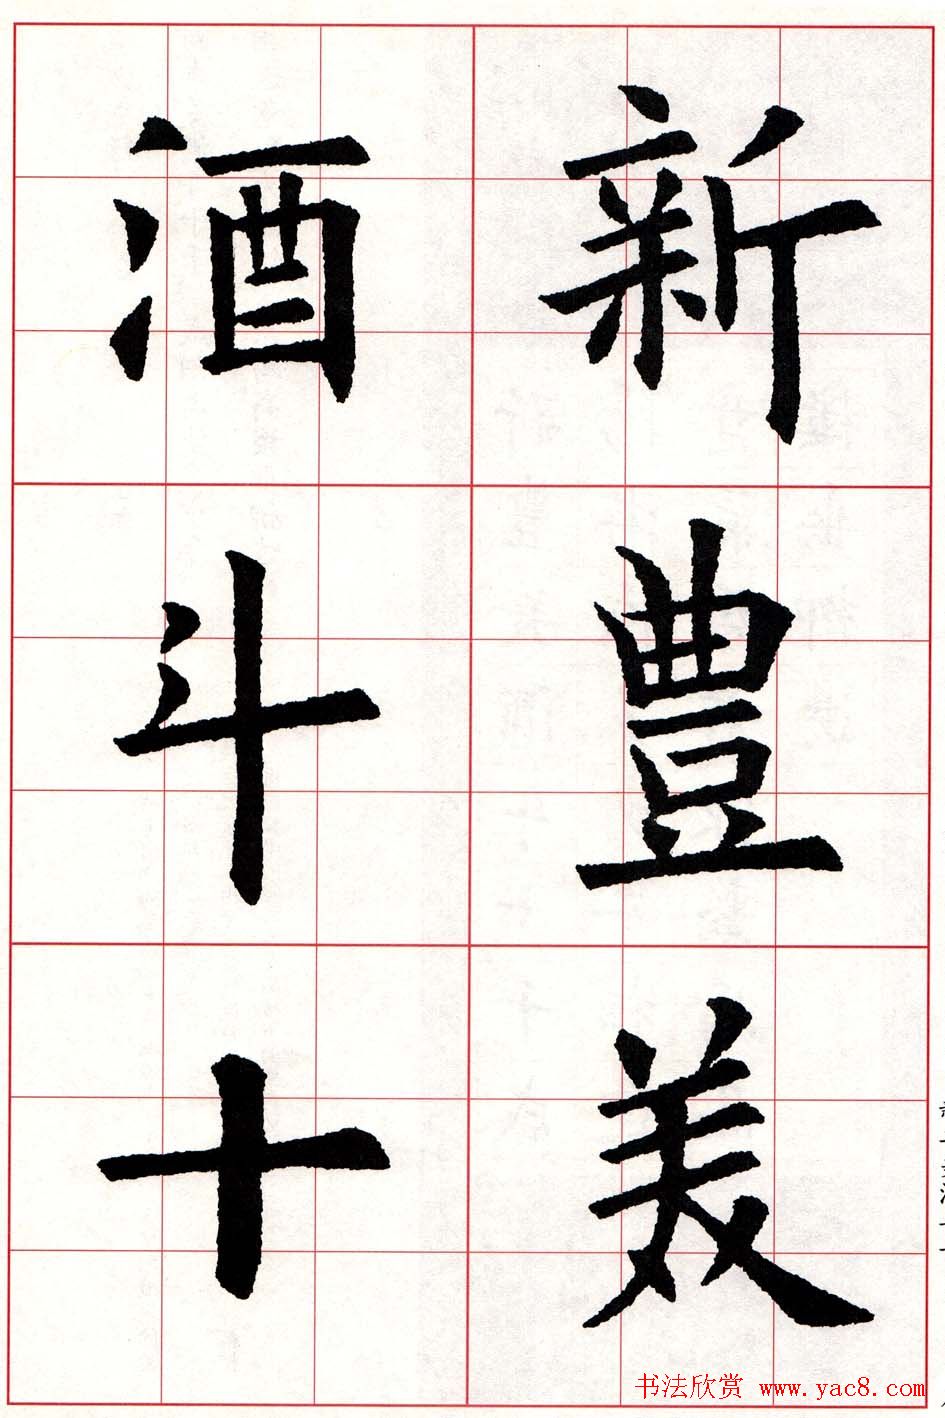 新豊美
酒斗十
书法欣赏 www.yac8.com